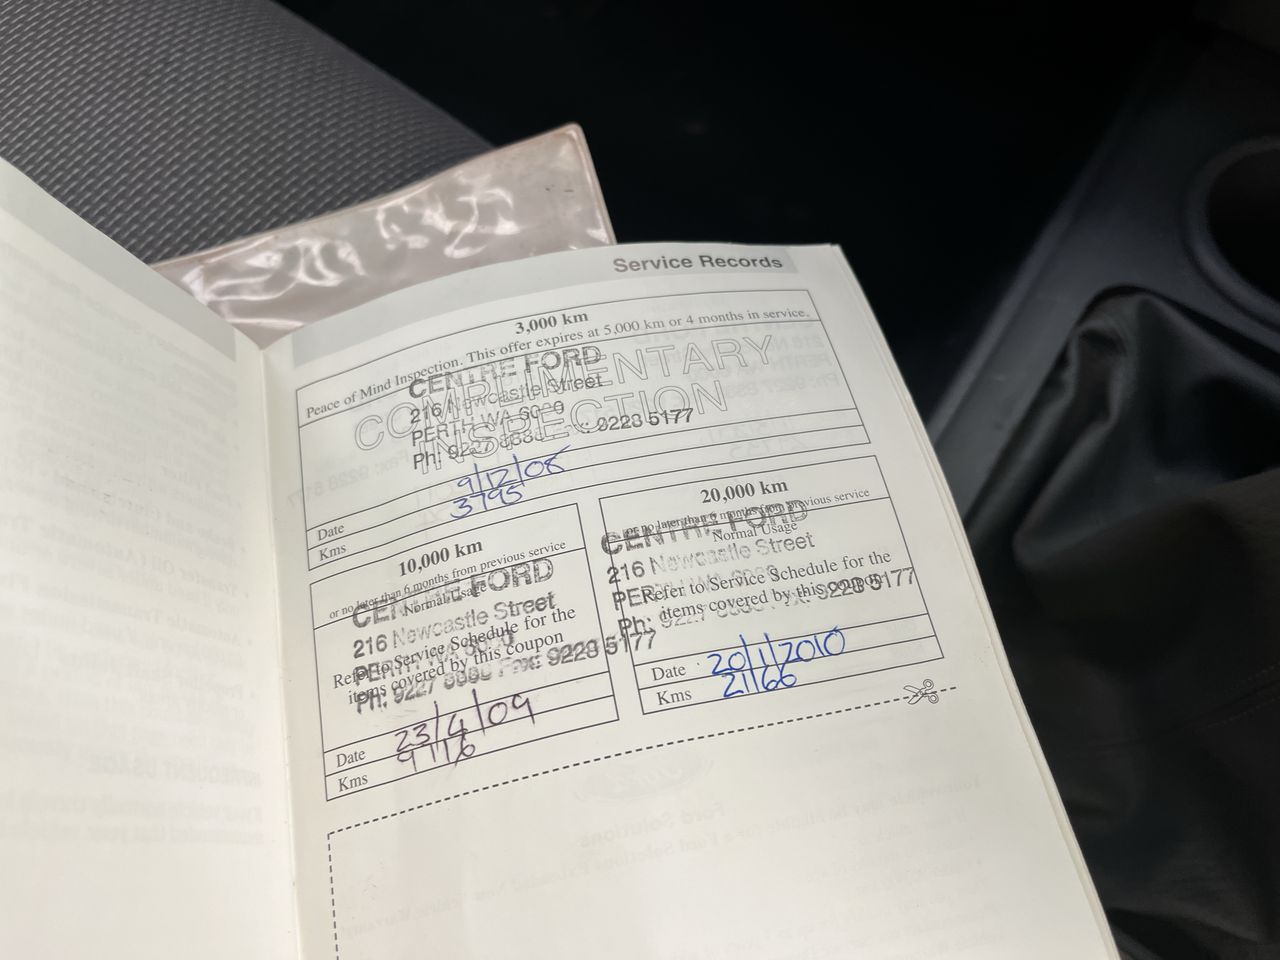 Service Records
3,000 km
Peace of Mind Inspection. This offer expires at 5,000 km or 4 months in service.
COMPLIMENTARY
INSPECTION
CENTRE FORD
216 Newcastle Street
PERTH WA 6000
Ph: 9227 8888 Fax: 9228 5177
Date 9/12/08
Kms 3795
10,000 km
or no later than 6 months from previous service
Normal Usage
Refer to Service Schedule for the
items covered by this coupon
CENTRE FORD
216 Newcastle Street
PERTH WA 6000
Ph: 9227 8888 Fax: 9228 5177
Date 23/4/09
Kms 9116
20,000 km
or no later than 6 months from previous service
Normal Usage
Refer to Service Schedule for the
items covered by this coupon
CENTRE FORD
216 Newcastle Street
PERTH WA 6000
Ph: 9227 8888 Fax: 9228 5177
Date 20/1/2010
Kms 21166